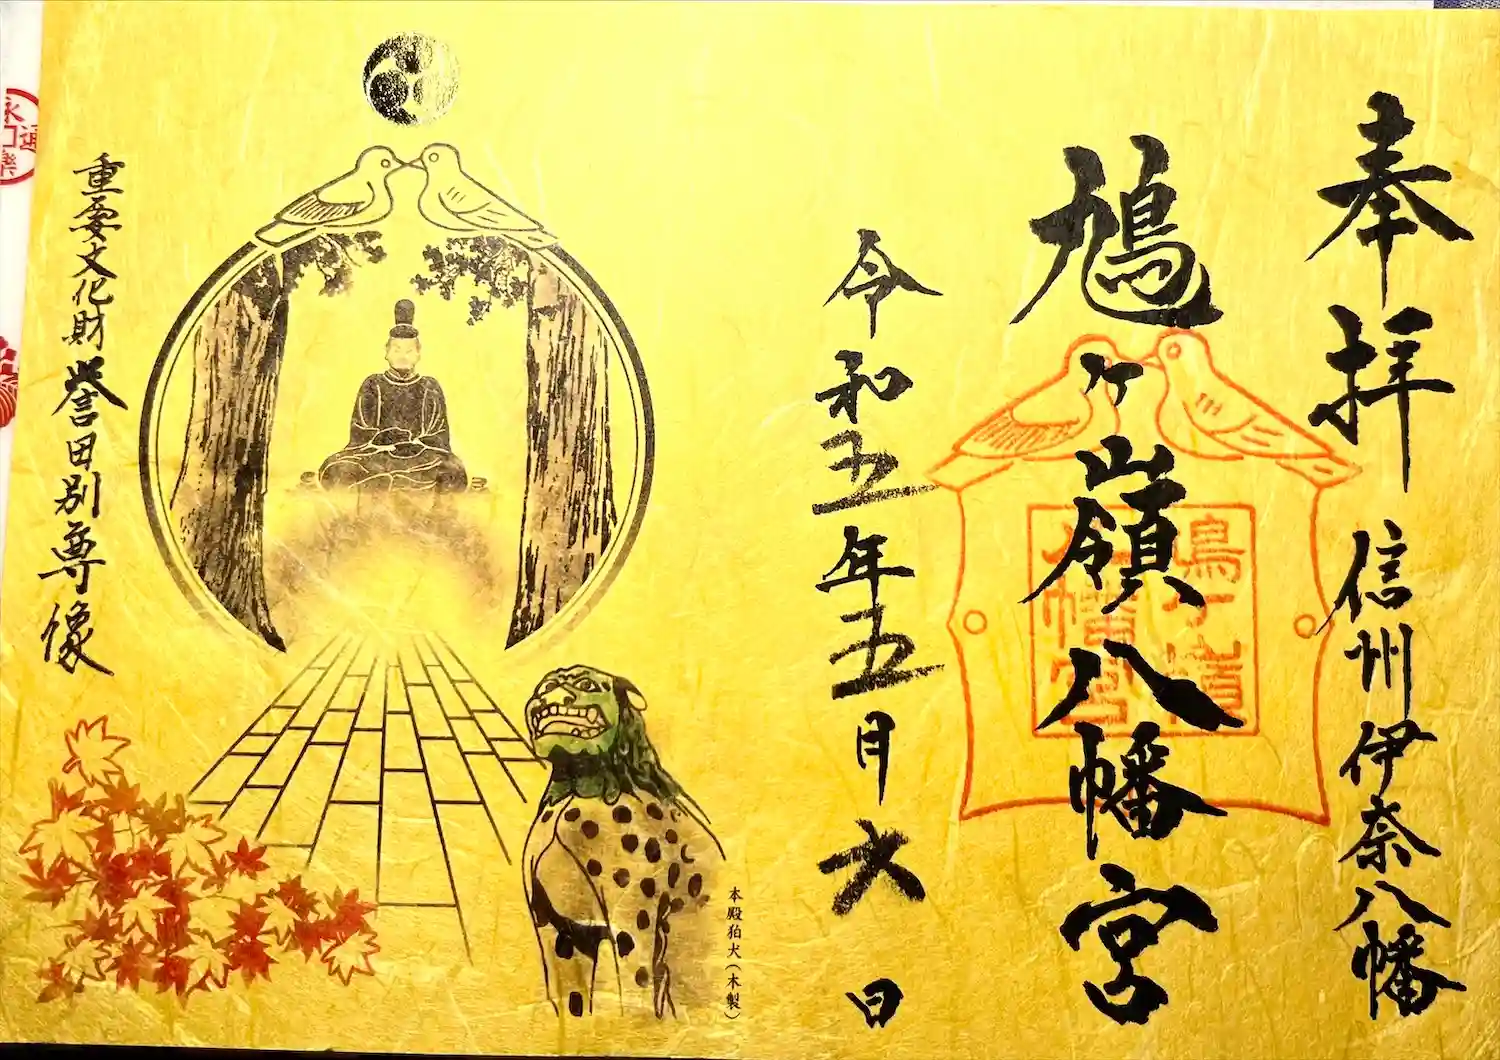 奉拝 信州伊奈八幡
鳩ヶ嶺八幡宮
鳩ヶ嶺
八幡宮
令和五年五月六日
本殿狛犬（木製）
重要文化財誉田別尊像